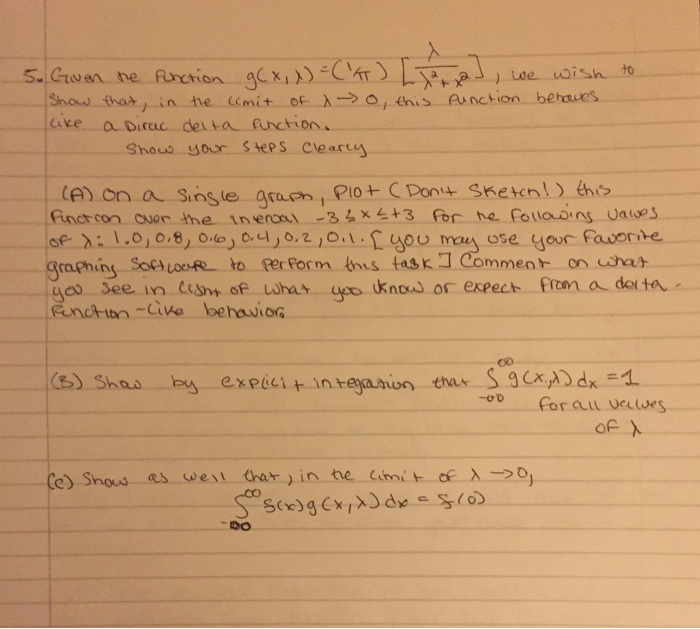 5. Given the function g(x,λ) = (1/π) [λ/(λ²+x²)], we wish to
show that, in the limit of λ→0, this function behaves
like a Dirac delta function.
Show your steps clearly
(A) On a single graph, Plot (Don't Sketch!) this
function over the interval -3≤x≤+3 for the following values
of λ: 1.0, 0.8, 0.6, 0.4, 0.2, 0.1. [you may use your favorite
graphing software to perform this task] Comment on what
you see in light of what you know or expect from a delta-
function-like behavior.
(B) Show by explicit integration that ∫_{-∞}^{∞} g(x,λ) dx = 1
for all values
of λ
(C) Show as well that, in the limit of λ→0,
∫_{-∞}^{∞} f(x)g(x,λ)dx = f(0)